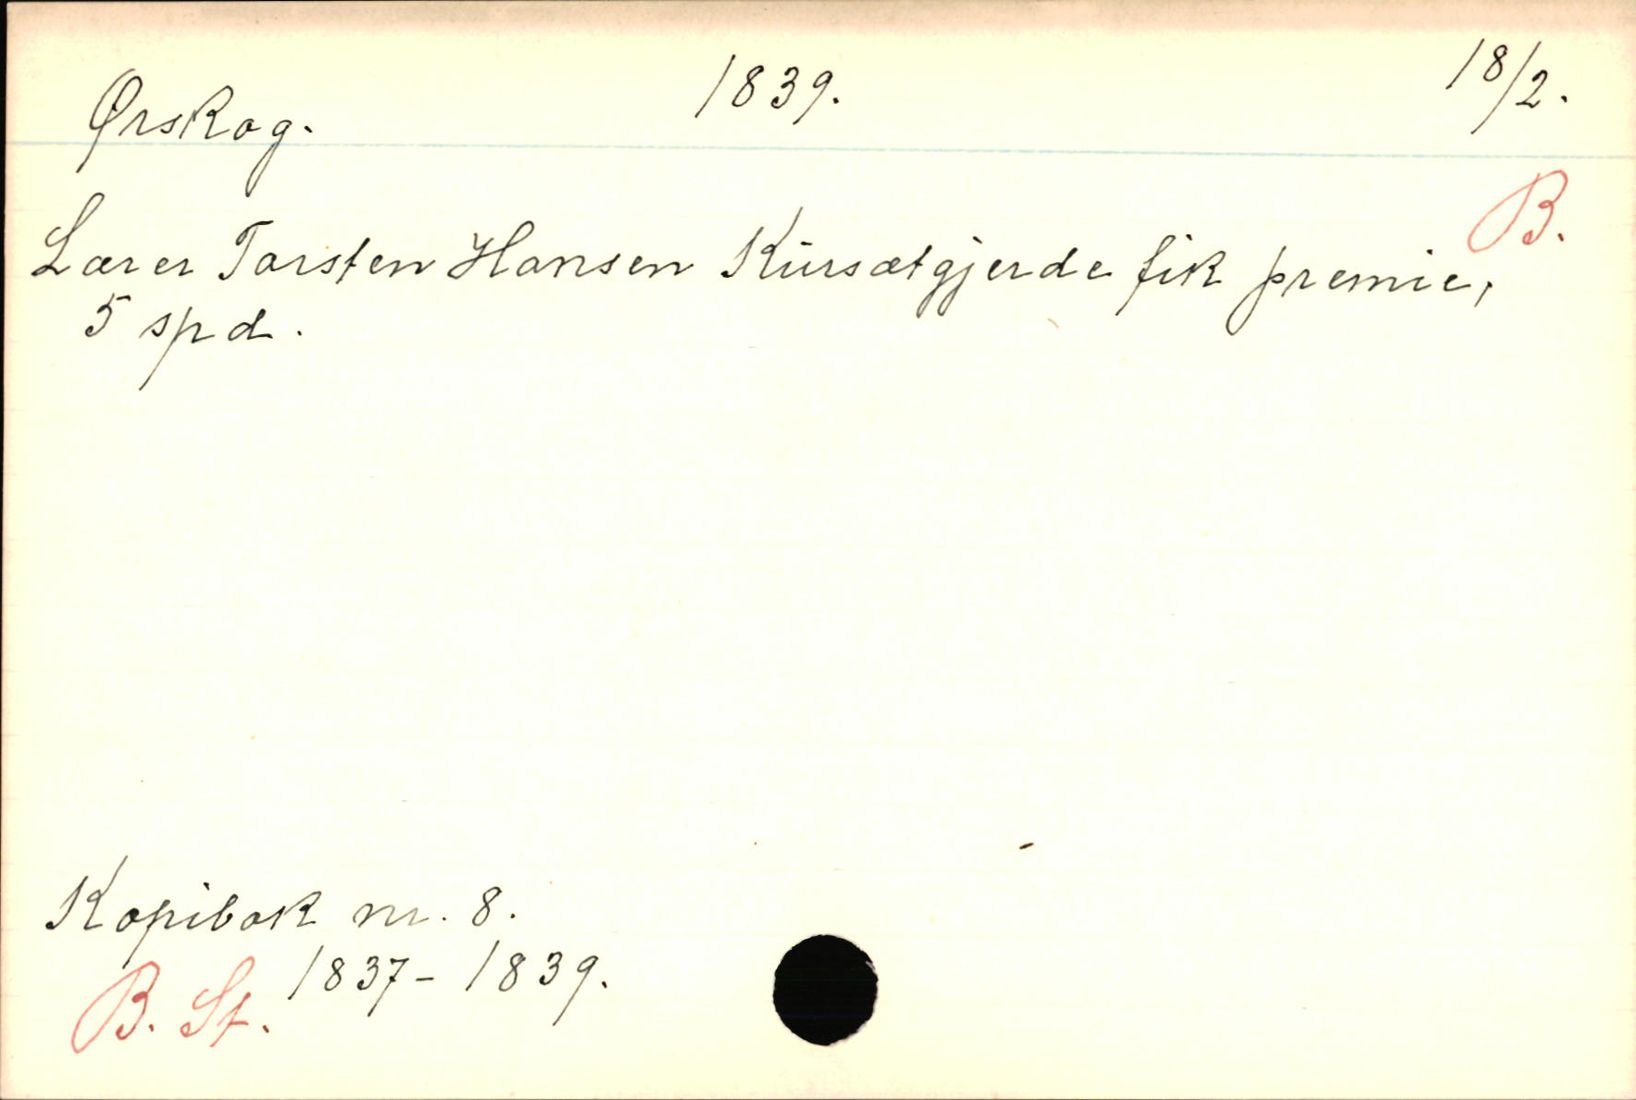 Ørskog. 1839. 18/2.
B.
Lærer Torsten Hansen Kursætgjerde fik premie,
5 spd.
Kopibok nr. 8.
B. St. 1837-1839.